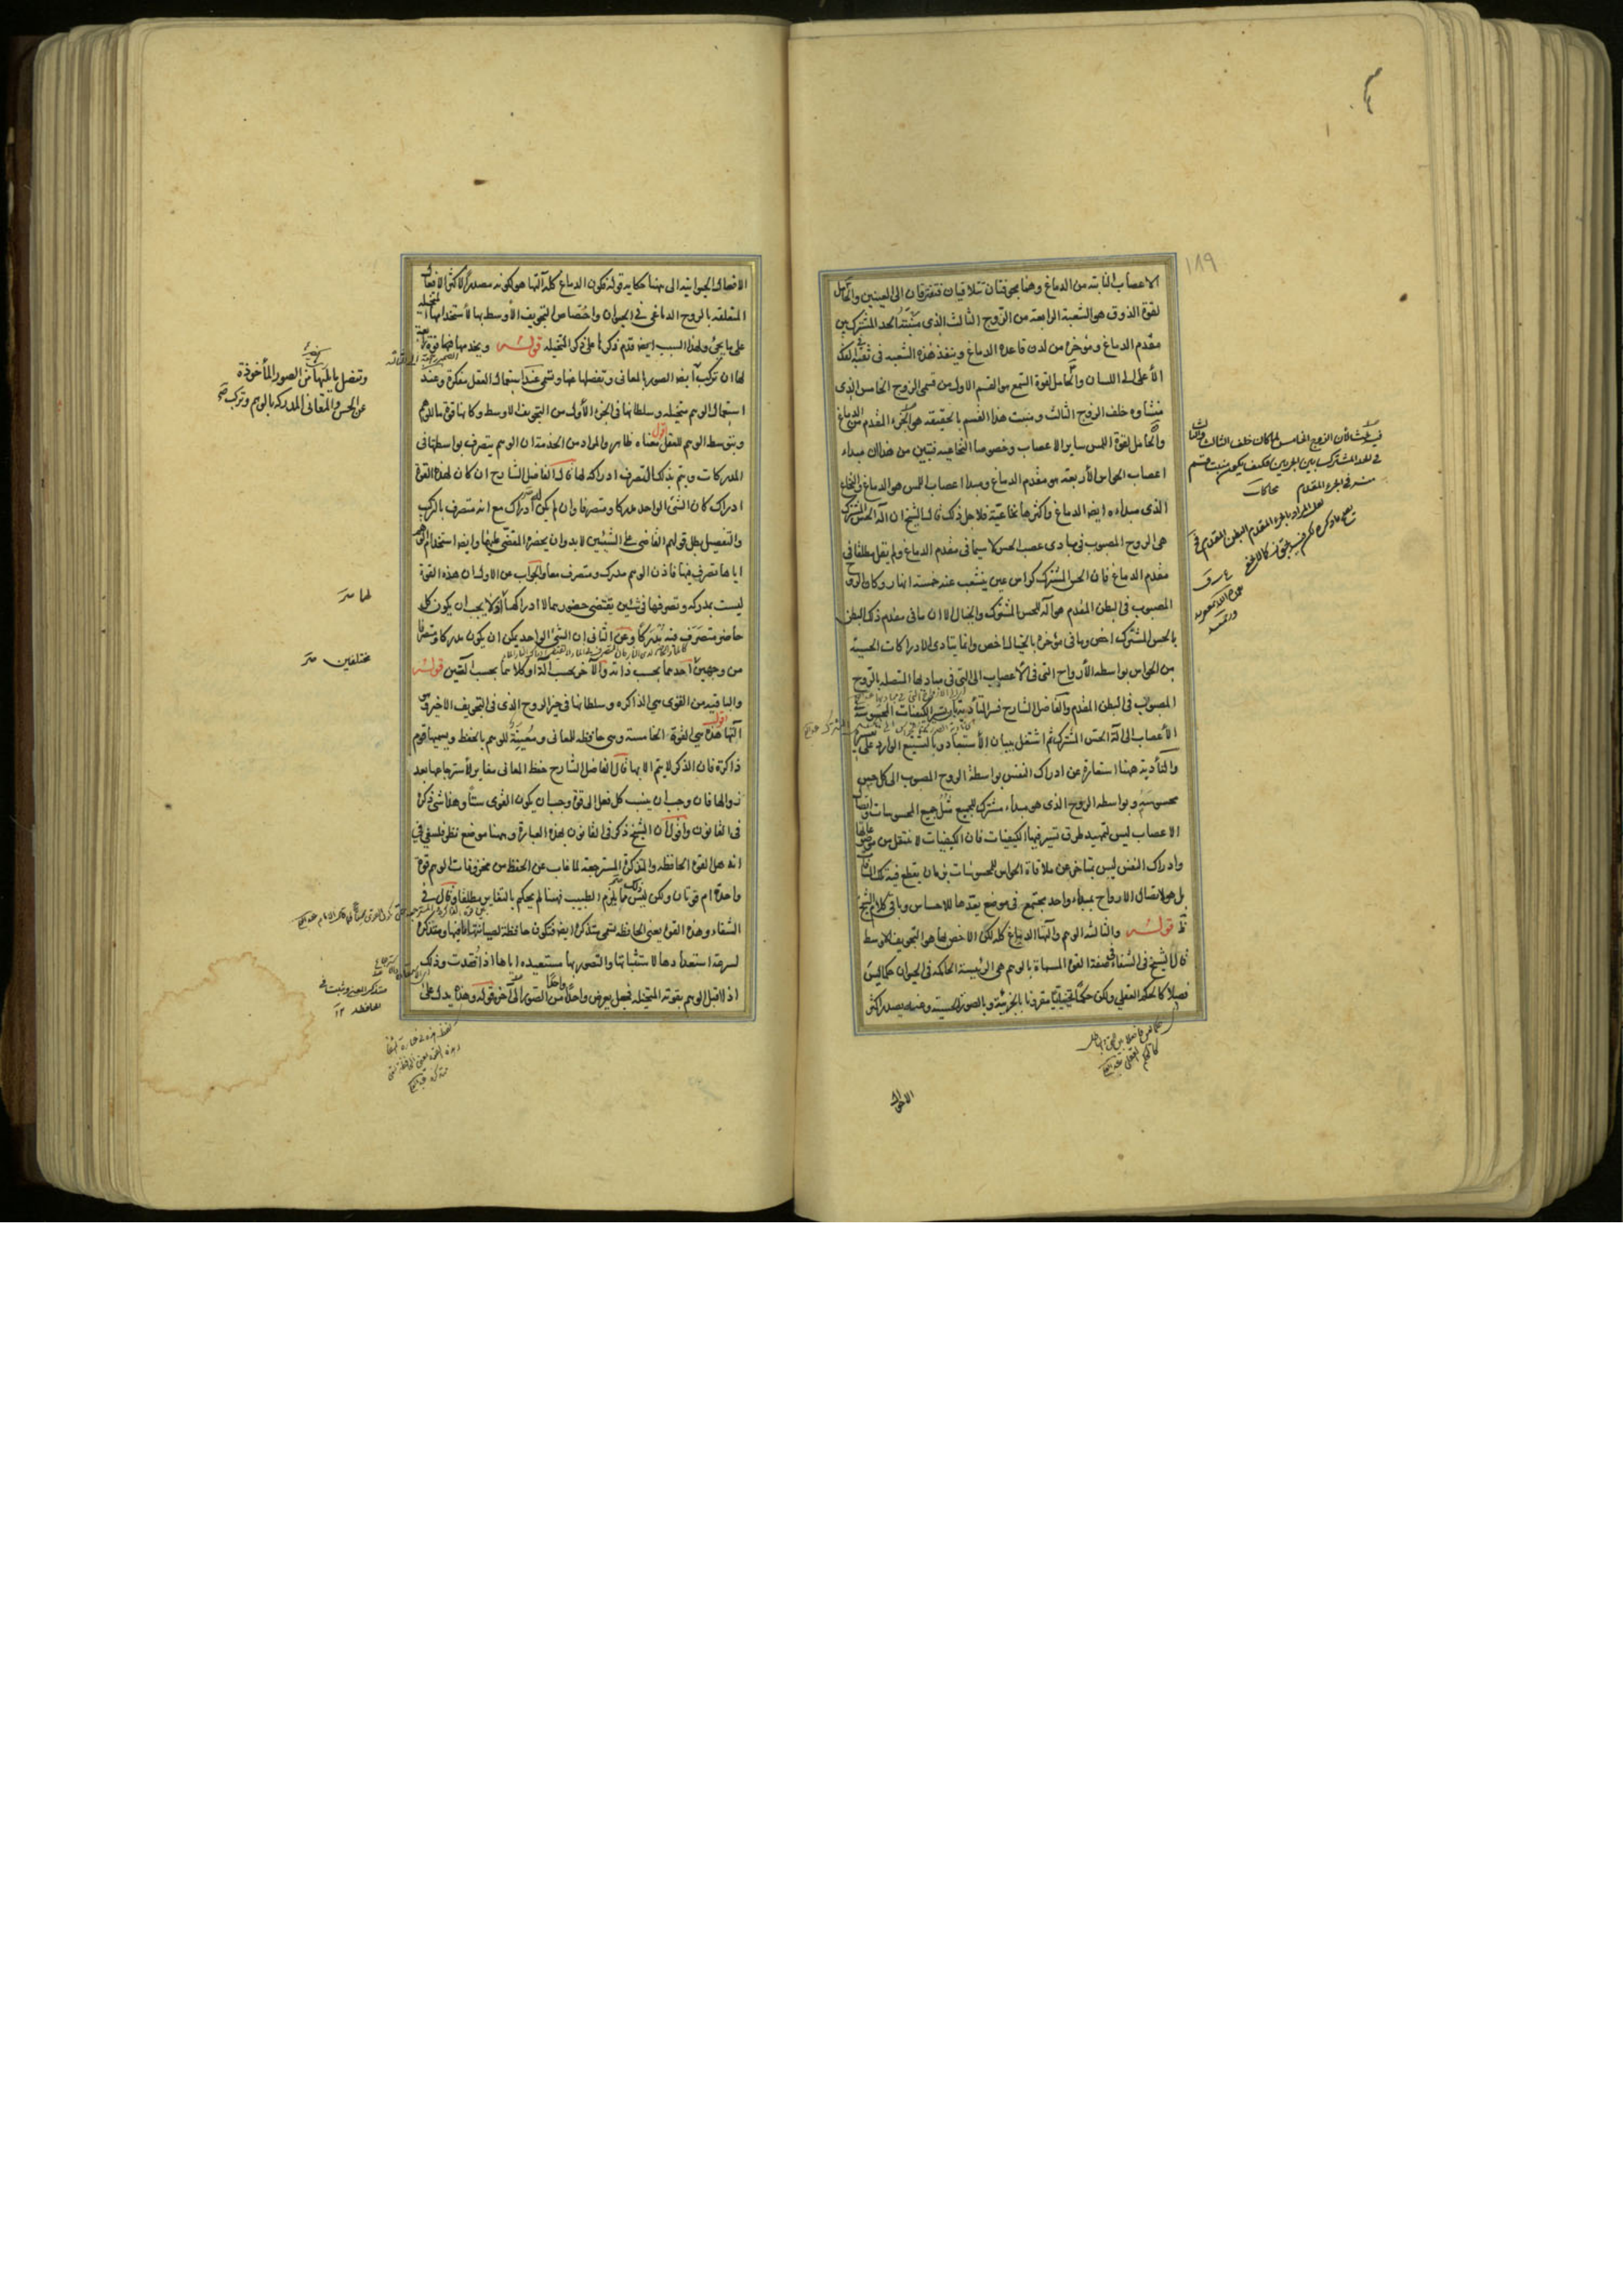 ١٨٩
الاعصاب النابتة من الدماغ وهما مجوفتان تتلاقيان فتفترقان الى العينين والحامل
لقوة الذوق هو الشعبة الرابعة من الزوج الثالث الذى منشأه الحد المشترك بين
مقدم الدماغ ومؤخره من لدن قاعدة الدماغ وينفذ هذه الشعبة فى ثقبة الفك
الأعلى الى اللسان والحامل لقوة السمع هو القسم الاول من قسمى الزوج الخامس الذى
منشاؤه خلف الزوج الثالث ومنبت هذا القسم بالحقيقة هو الجزء المقدم من الدماغ
والحامل لقوة اللمس ساير الاعصاب وخصوصا النخاعية فتبين من هذا ان مبداء
اعصاب الحواس الأربعة هو مقدم الدماغ ومبدا اعصاب اللمس هو الدماغ والنخاع
الذى مبداءه ايضا الدماغ واكثرها نخاعية فلاجل ذلك قال الشيخ ان آلة الحس المشترك
هى الروح المصبوب فى مبادى عصب الحس لا سيما فى مقدم الدماغ ولم يقل مطلقا فى
مقدم الدماغ فان الحس المشترك كراس عين ينشعب عنه خمسة انهار وكان الروح
المصبوب فى البطن المقدم هو آلة للحس المشترك والخيال الا ان ما فى مقدم ذلك البطن
بالحس المشترك اخص وما فى مؤخره بالخيال اخص وانما يتادى الادراكات الحسية
من الحواس بواسطة الأرواح التى فى الأعصاب الى التى فى مبادها المتصلة بالروح
المصبوب فى البطن المقدم والفاضل الشارح فسر التأدية بان الكيفيات المحسوسة
الأعصاب الى آلة الحس المشترك ثم اشتغل ببيان الأستبعاد والتشنيع الوارد على
والتأدية ههنا استعارة عن ادراك النفس بواسطة الروح المصبوب الى كل حس
محسوسه وبواسطة الروح الذى هو مبداء مشترك للجميع مثل جميع المحسوسات
الاعصاب ليس لتمهيد طرق تسير فيها الكيفيات فان الكيفيات لا تنتقل من
وادراك النفس ليس يتاخر عن ملاقاة الحواس للمحسوسات بزمان يقطع فيه تلك
بل هو لاتصال الارواح بمبداء واحد مجتمع فى موضع يعدها للاحساس وباقى كلام الشيخ
ظ قوله والثالثة الوهم وآلتها الدماغ كله لكن الاخص بها هو التجويف الاوسط
قال الشيخ فى الشفاء فى صفة القوة المسماة بالوهم هى الرئيسة الحاكمة فى الحيوان حكما ليس
فصلا كالحكم العقلى ولكن حكما تخيليا مقرونا بالجزئية وبالصورة الحسية وعنه يصدر اكثر
الافعال
الافعال الحيوانية الى ههنا حكاية قوله فكون الدماغ كله آلتها هو لكونه مصدرا لاكثر الافعال
المتعلقة بالروح الدماغى فى الحيوان واختصاص التجويف الأوسط بها لأستخدامها المتخيلة
على ما يجئ ولهذا السبب ايضا قدم ذكرها على ذكر المتخيلة قوله ويخدمها فيها قوة رابعة
لها ان تركب ايضا الصور المعانى وتفصلها عنها وتسمى عند استعمال العقل مفكرة وعند
استعمال الوهم متخيلة وسلطانها فى الجزء الأول من التجويف الاوسط وكانها قوة ما للوهم
وبتوسط الوهم للعقل اقول معناه ظاهر والمراد من الخدمة ان الوهم يتصرف بواسطتها فى
المدركات ويتم بذلك التصرف ادراكه لها قال الفاضل الشارح ان كان لهذه القوة
ادراك كان الشئ الواحد مدركا ومتصرفا وان لم يكن لها ادراك مع انه متصرف بالتركيب
والتفصيل بطل قولهم القاضى على الشيئين لابد وان يحضره المقضى عليهما وايضا استخدام الوهم
اياها متصرف فيها فاذن الوهم مدرك ومتصرف معا والجواب عن الاول ان هذه القوة
ليست بمدركة وتصرفها فى شيئين يقتضى حضورهما لا ادراكهما اذ لا يجب ان يكون كل
حاضر متصرف فيه مدركا وعن الثانى ان الشئ الواحد يمكن ان يكون مدركا ومتصرفا
من وجهين احدهما بحسب ذاته والآخر بحسب آلة او كلاهما بحسب آلتين قوله
والباقية من القوى هى الذاكرة وسلطانها فى حيز الروح الذى فى التجويف الاخير
آلتها اقول هذه هى القوة الخامسة وهى حافظة للمعانى ومعينة للوهم بالحفظ ويسميها قوم
ذاكرة فان الذكر لا يتم الا بها قال الفاضل الشارح حفظ المعانى مغاير لأسترجاعها بعد
زوالها فان وجب ان ينسب كل فعل الى قوة وجب ان يكون القوى ستا وهذا شئ ذكره
فى القانون واقول ان الشيخ ذكر فى القانون بهذه العبارة وههنا موضع نظر فلسفى فى
انه هل القوة الحافظة والمتذكرة المسترجعة لما غاب عن الحفظ من مخزونات الوهم قوة
واحدة ام قوتان ولكن ليس ذلك مما يلزم الطبيب فههنا لم يحكم بالتغاير مطلقا وقال فى
الشفاء وهذه القوة يعنى الحافظة تسمى متذكرة ايضا فتكون حافظة لصيانتها ما فيها ومتذكرة
لسرعة استعدادها لاستثباتها والتصور بها مستعيدة اياها اذا فقدت وذلك
اذا اقبل الوهم بقوته المتخيلة فجعل يعرض واحدا واحدا من الصور الى آخر قوله وهذا يدل على
وتفصل بما يليها من الصور المأخوذة
عن الحس والمعانى المدركة بالوهم وتركب
لها
مختلفين